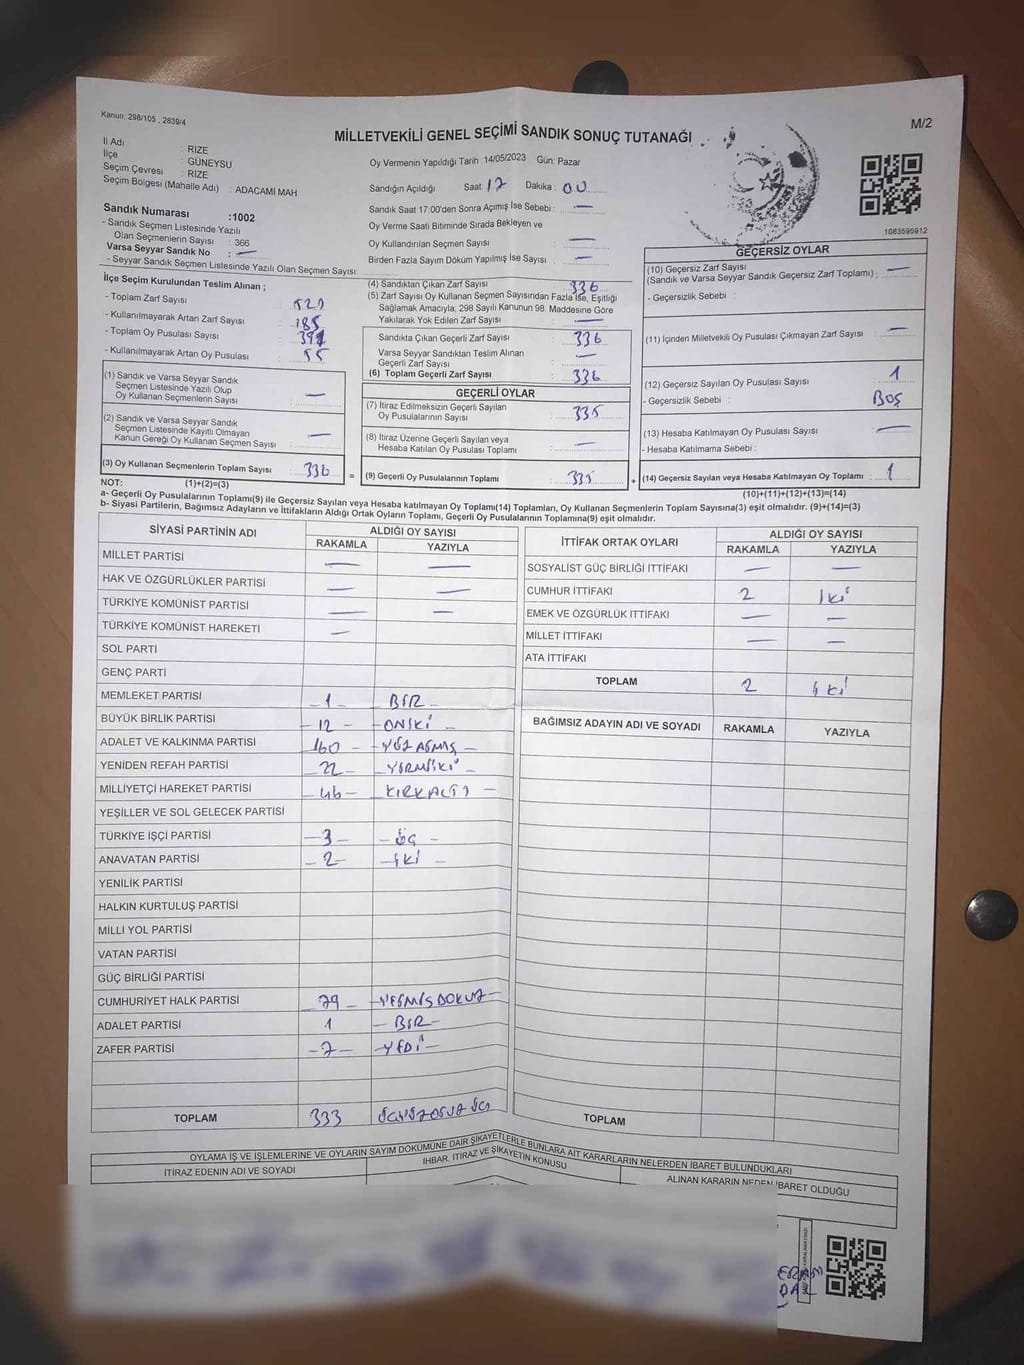 Kanun: 298/105 , 2839/4
M/2
MİLLETVEKİLİ GENEL SEÇİMİ SANDIK SONUÇ TUTANAĞI
İl Adı : RİZE
İlçe : GÜNEYSU
Seçim Çevresi : RİZE
Seçim Bölgesi (Mahalle Adı) : ADACAMI MAH
Sandık Numarası :1002
- Sandık Seçmen Listesinde Yazılı
Olan Seçmenlerin Sayısı : 366
Varsa Seyyar Sandık No : —
- Seyyar Sandık Seçmen Listesinde Yazılı Olan Seçmen Sayısı
Oy Vermenin Yapıldığı Tarih 14/05/2023 Gün: Pazar
Sandığın Açıldığı Saat 17 Dakika : 00
Sandık Saat 17:00'den Sonra Açımış İse Sebebi : —
Oy Verme Saati Bitiminde Sırada Bekleyen ve
Oy Kullandırılan Seçmen Sayısı —
Birden Fazla Sayım Döküm Yapılmış İse Sayısı : —
1083595912
İlçe Seçim Kurulundan Teslim Alınan ;
- Toplam Zarf Sayısı
- Kullanılmayarak Artan Zarf Sayısı : 185
- Toplam Oy Pusulası Sayısı
- Kullanılmayarak Artan Oy Pusulası : 55
(1) Sandık ve Varsa Seyyar Sandık
Seçmen Listesinde Yazılı Olup
Oy Kullanan Seçmenlerin Sayısı : —
(2) Sandık ve Varsa Seyyar Sandık
Seçmen Listesinde Kayıtlı Olmayan
Kanun Gereği Oy Kullanan Seçmen Sayısı : —
(3) Oy Kullanan Seçmenlerin Toplam Sayısı : 336
(4) Sandıktan Çıkan Zarf Sayısı : 336
(5) Zarf Sayısı Oy Kullanan Seçmen Sayısından Fazla İse, Eşitliği
Sağlamak Amacıyla, 298 Sayılı Kanunun 98. Maddesine Göre
Yakılarak Yok Edilen Zarf Sayısı : —
Sandıkta Çıkan Geçerli Zarf Sayısı : 336
Varsa Seyyar Sandıktan Teslim Alınan
Geçerli Zarf Sayısı : —
(6) Toplam Geçerli Zarf Sayısı : 336
GEÇERLİ OYLAR
(7) İtiraz Edilmeksizin Geçerli Sayılan
Oy Pusulalarının Sayısı : 335
(8) İtiraz Üzerine Geçerli Sayılan veya
Hesaba Katılan Oy Pusulası Toplamı : —
= (9) Geçerli Oy Pusulalarının Toplamı : 335
GEÇERSİZ OYLAR
(10) Geçersiz Zarf Sayısı
(Sandık ve Varsa Seyyar Sandık Geçersiz Zarf Toplamı) : —
- Geçersizlik Sebebi :
(11) İçinden Milletvekili Oy Pusulası Çıkmayan Zarf Sayısı : —
(12) Geçersiz Sayılan Oy Pusulası Sayısı : 1
- Geçersizlik Sebebi : BOŞ
(13) Hesaba Katılmayan Oy Pusulası Sayısı : —
- Hesaba Katılmama Sebebi :
+ (14) Geçersiz Sayılan veya Hesaba Katılmayan Oy Toplamı : 1
NOT: (1)+(2)=(3)
(10)+(11)+(12)+(13)=(14)
a- Geçerli Oy Pusulalarının Toplamı(9) ile Geçersiz Sayılan veya Hesaba Katılmayan Oy Toplamı(14) Toplamları, Oy Kullanan Seçmenlerin Toplam Sayısına(3) eşit olmalıdır. (9)+(14)=(3)
b- Siyasi Partilerin, Bağımsız Adayların ve İttifakların Aldığı Ortak Oyların Toplamı, Geçerli Oy Pusulalarının Toplamına(9) eşit olmalıdır.
SİYASİ PARTİNİN ADI ALDIĞI OY SAYISI
RAKAMLA YAZIYLA
MİLLET PARTİSİ — —
HAK VE ÖZGÜRLÜKLER PARTİSİ — —
TÜRKİYE KOMÜNİST PARTİSİ — —
TÜRKİYE KOMÜNİST HAREKETİ —
SOL PARTİ
GENÇ PARTİ
MEMLEKET PARTİSİ - 1 - BİR -
BÜYÜK BİRLİK PARTİSİ - 12 - - ONİKİ -
ADALET VE KALKINMA PARTİSİ 160 - - YÜZ ATMIŞ -
YENİDEN REFAH PARTİSİ - 22 - - YİRMİİKİ -
MİLLİYETÇİ HAREKET PARTİSİ - 46 - KIRKALTI -
YEŞİLLER VE SOL GELECEK PARTİSİ
TÜRKİYE İŞÇİ PARTİSİ - 3 - - ÜÇ -
ANAVATAN PARTİSİ - 2 - - İKİ -
YENİLİK PARTİSİ
HALKIN KURTULUŞ PARTİSİ
MİLLİ YOL PARTİSİ
VATAN PARTİSİ
GÜÇ BİRLİĞİ PARTİSİ
CUMHURİYET HALK PARTİSİ - 79 - - YETMİŞDOKUZ -
ADALET PARTİSİ 1 - BİR -
ZAFER PARTİSİ - 7 - - YEDİ -
TOPLAM 333 ÜÇYÜZOTUZ ÜÇ
İTTİFAK ORTAK OYLARI ALDIĞI OY SAYISI
RAKAMLA YAZIYLA
SOSYALİST GÜÇ BİRLİĞİ İTTİFAKI — —
CUMHUR İTTİFAKI 2 İKİ
EMEK VE ÖZGÜRLÜK İTTİFAKI — —
MİLLET İTTİFAKI — —
ATA İTTİFAKI
TOPLAM 2 İKİ
BAĞIMSIZ ADAYIN ADI VE SOYADI RAKAMLA YAZIYLA
TOPLAM
OYLAMA İŞ VE İŞLEMLERİNE VE OYLARIN SAYIM DÖKÜMÜNE DAİR ŞİKAYETLERLE BUNLARA AİT KARARLARIN NELERDEN İBARET BULUNDUKLARI
İTİRAZ EDENİN ADI VE SOYADI İHBAR, İTİRAZ VE ŞİKAYETİN KONUSU ALINAN KARARIN NEDEN İBARET OLDUĞU